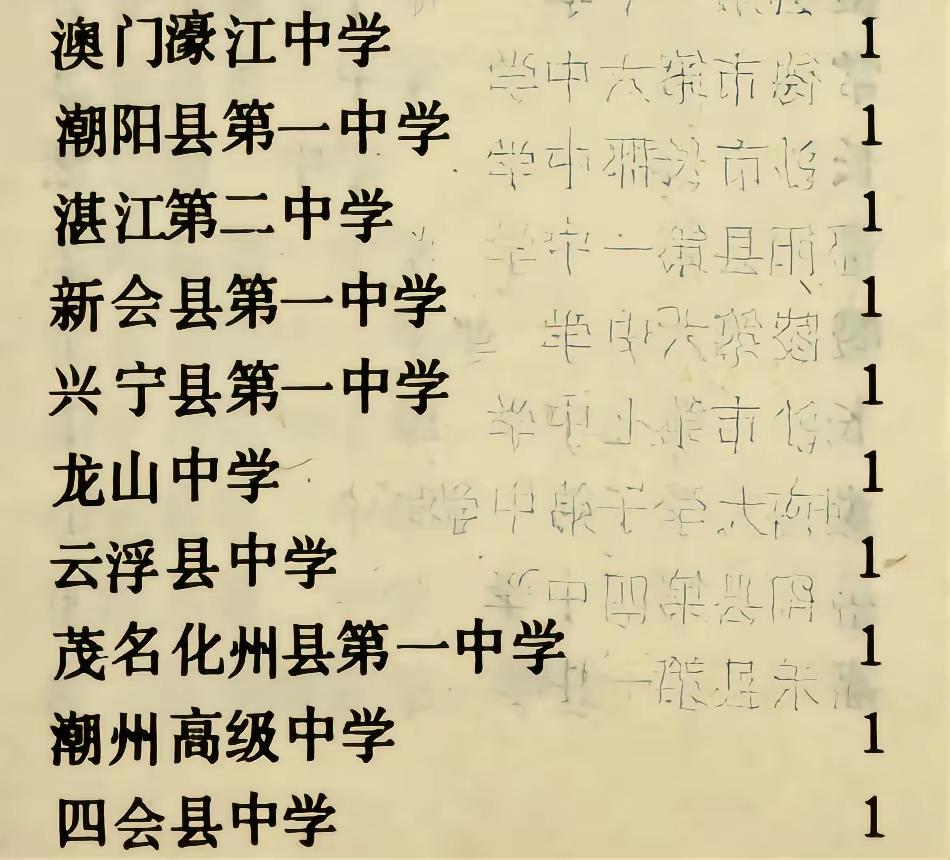 澳门濠江中学 1
潮阳县第一中学 1
湛江第二中学 1
新会县第一中学 1
兴宁县第一中学 1
龙山中学 1
云浮县中学 1
茂名化州县第一中学 1
潮州高级中学 1
四会县中学 1